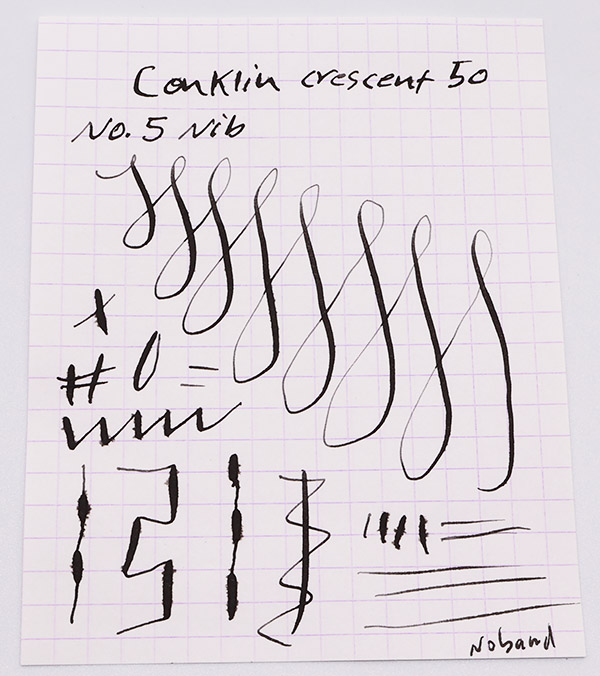 Conklin crescent 50
No. 5 Nib
x
# 0 =
Noband